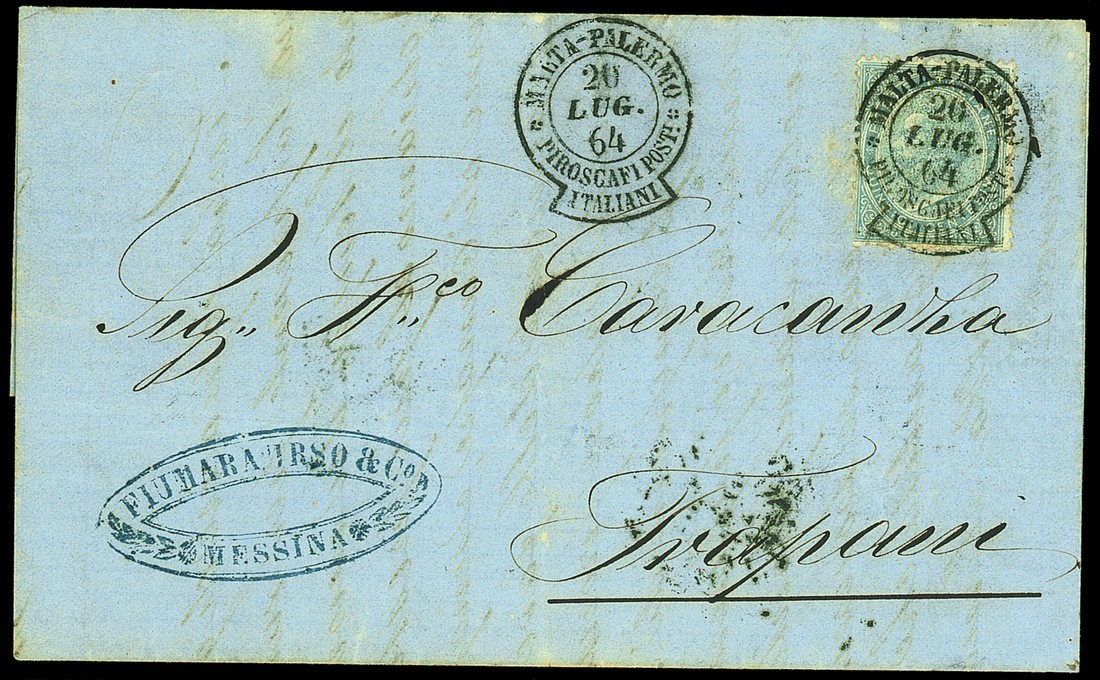 MALTA-PALERMO
20
LUG.
64
PIROSCAFI POST!
ITALIANI
MALTA-PALERMO
20
LUG.
64
PIROSCAFI POST!
ITALIANI
Sig,, F,,co Caracausha
Trapani
FIUMARA URSO & Co
MESSINA